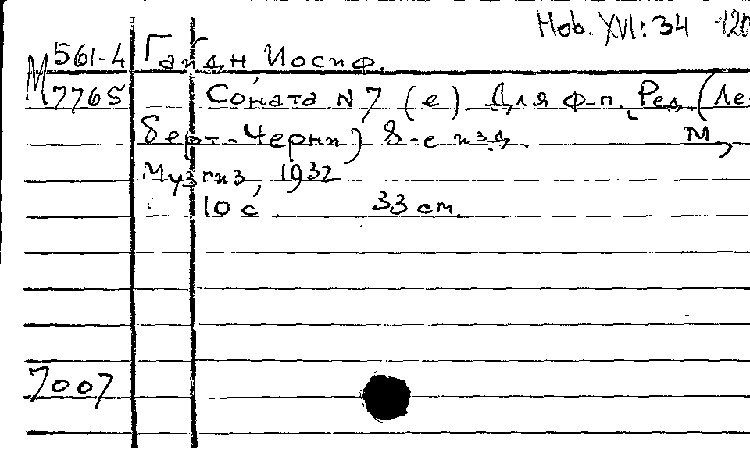 Hob. XVI:34 120
М 561-4 Гайдн, Иосиф.
7765 Соната N 7 (e) Для ф-п. Ред. (Ле-
берт-Черни) 8-е изд. М,
Музгиз, 1932
10 с 33 cm.
7007